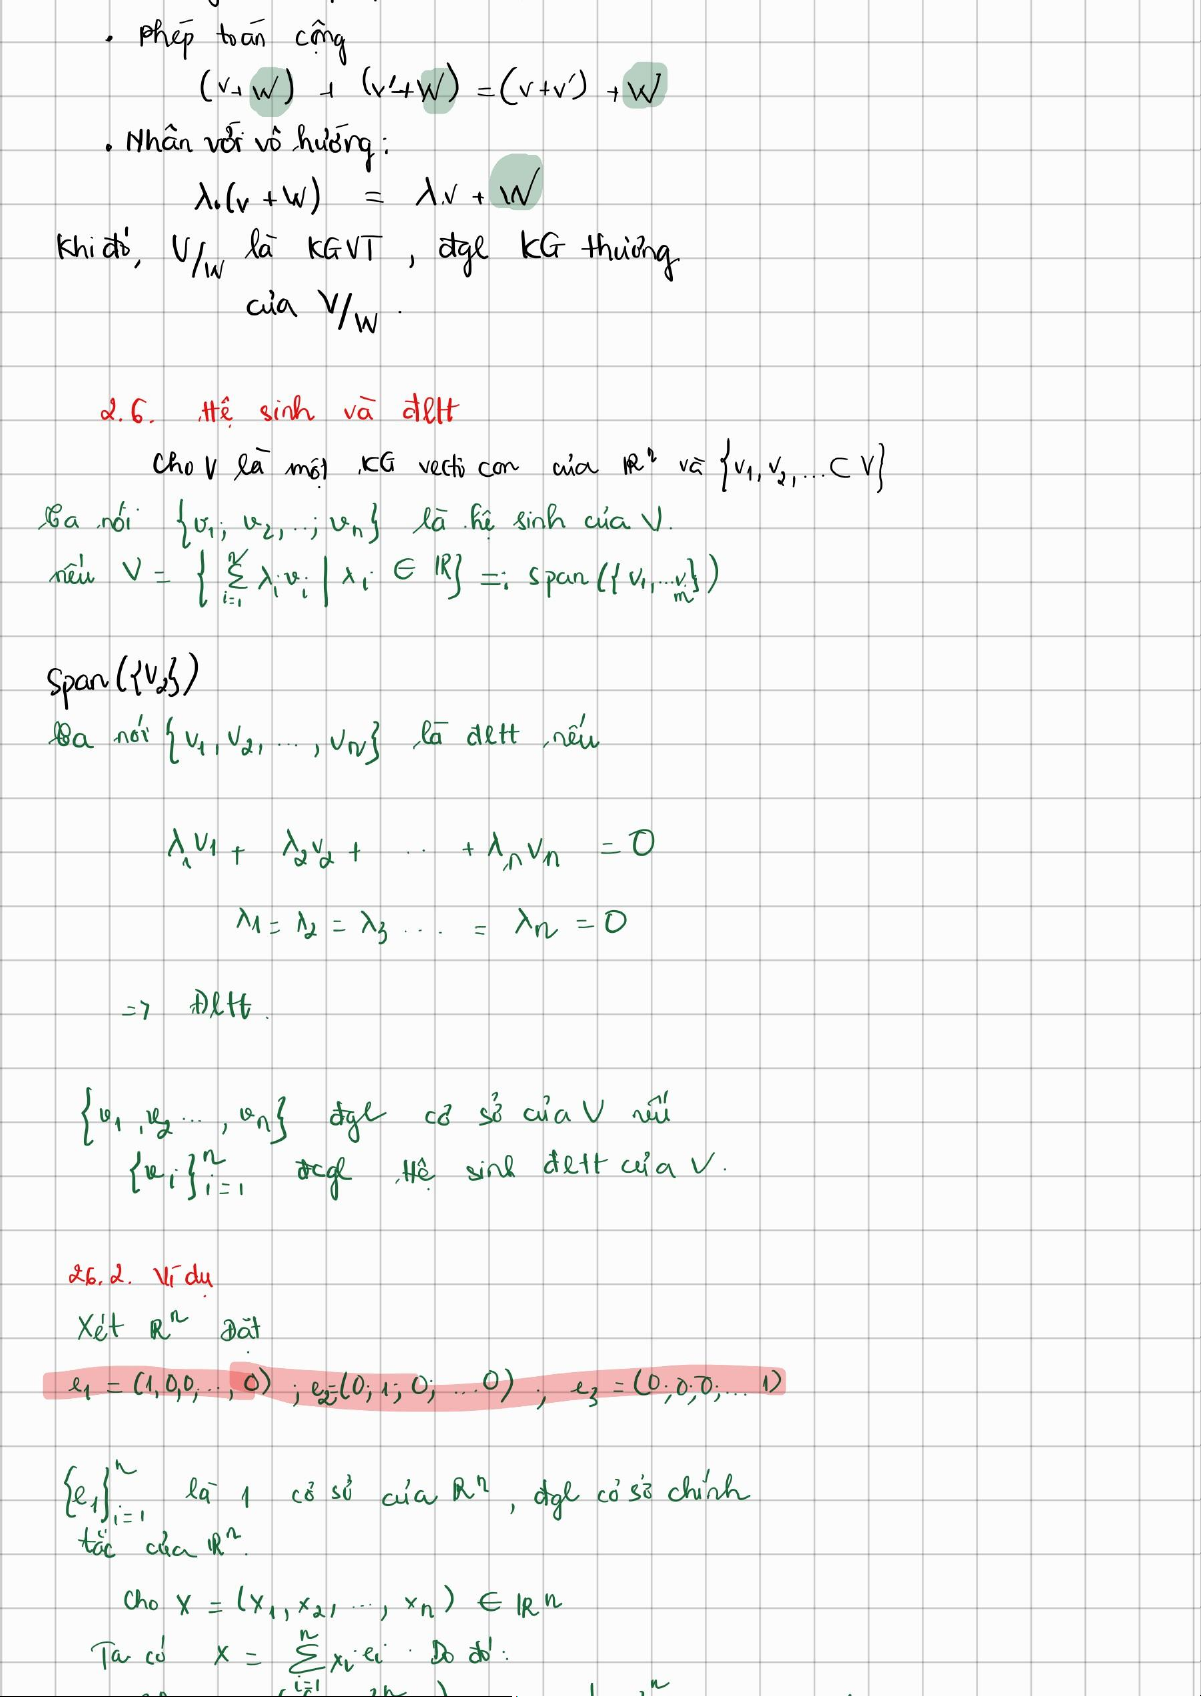 • Phép toán cộng
(v+W) + (v'+W) = (v+v') + W
• Nhân với vô hướng:
λ.(v+W) = λ.v + W
Khi đó, V/W là KGVT, đgl KG thương
của V/W.
2.6. Hệ sinh và đltt
Cho V là một KG vectơ con của ℝⁿ và {v₁, v₂, ... ⊂ V}
Ta nói {v₁; v₂, ..; vₙ} là hệ sinh của V.
nếu V = { ∑ᵢ₌₁ⁿ λᵢvᵢ | λᵢ ∈ ℝ} =: span({v₁, ...vₘ})
Span({V₂})
Ta nói {v₁, v₂, ..., vₙ} là đltt nếu
λ₁v₁ + λ₂v₂ + ... + λₙvₙ = 0
λ₁ = λ₂ = λ₃ ... = λₙ = 0
=> Đltt.
{v₁, v₂ ..., vₙ} đgl cơ sở của V nếu
{vᵢ}ᵢ₌₁ⁿ đcgl Hệ sinh đltt của V.
2.6.2. Ví dụ
Xét ℝⁿ Đặt
e₁ = (1,0,0,..., 0) ; e₂=(0; 1; 0; ...0) ; e₃ = (0;0;0;... 1)
{e₁}ᵢ₌₁ⁿ là 1 cơ sở của ℝⁿ, đgl cơ sở chính
tắc của ℝⁿ.
Cho x = (x₁, x₂, ..., xₙ) ∈ ℝⁿ
Ta có x = ∑ᵢ₌₁ⁿ xᵢ eᵢ. Do đó: